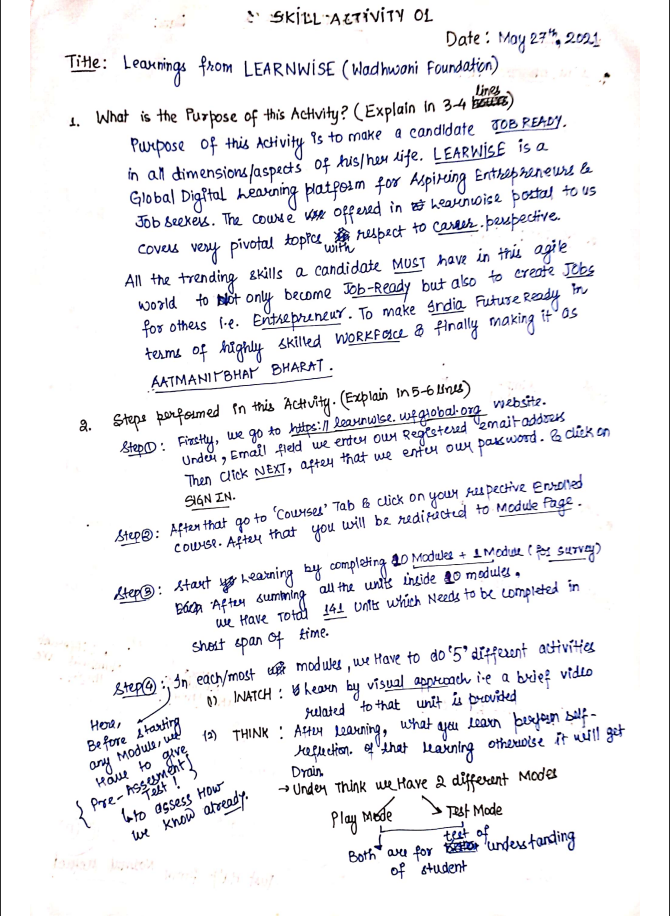 SKILL-ACTIVITY 01
Date: May 27th, 2021
Title: Learnings from LEARNWISE (Wadhwani Foundation)
1. What is the Purpose of this Activity? (Explain in 3-4 lines)
Purpose of this Activity is to make a candidate JOB READY.
in all dimensions/aspects of his/her life. LEARWISE is a
Global Digital Learning platform for Aspiring Entrepreneurs &
Job seekers. The course offered in Learnwise portal to us
covers very pivotal topics with respect to career perspective.
All the trending skills a candidate MUST have in this agile
world to Not only become Job-Ready but also to create Jobs
for others i.e. Entrepreneur. To make India Future Ready in
terms of highly skilled WORKFORCE & finally making it as
AATMANIRBHAR BHARAT.
2. Steps performed in this Activity. (Explain in 5-6 lines)
Step①: Firstly, we go to https://learnwise.wfglobal.org website.
Under, Email field we enter our Registered email address
Then Click NEXT, after that we enter our password. & click on
SIGN IN.
Step②: After that go to 'Courses' Tab & click on your respective Enrolled
course. After that you will be redirected to Module Page.
Step③: Start Learning by completing 10 Modules + 1 Module (for survey)
After summing all the units inside 10 modules.
we Have Total 141 Units which Needs to be completed in
short span of time.
Step④: In each/most modules, we Have to do '5' different activities
(1) WATCH: Learn by visual approach i.e a brief video
related to that unit is provided
(2) THINK: After Learning, what you learn perform self-
reflection. of that learning otherwise it will get
Drain.
→ Under Think we Have 2 different Modes
Play Mode Test Mode
Both are for test of understanding
of student
Here,
Before starting
any Module, we
Have to give
{Pre-Assesment}
Test!
↳ to assess How
we know already.